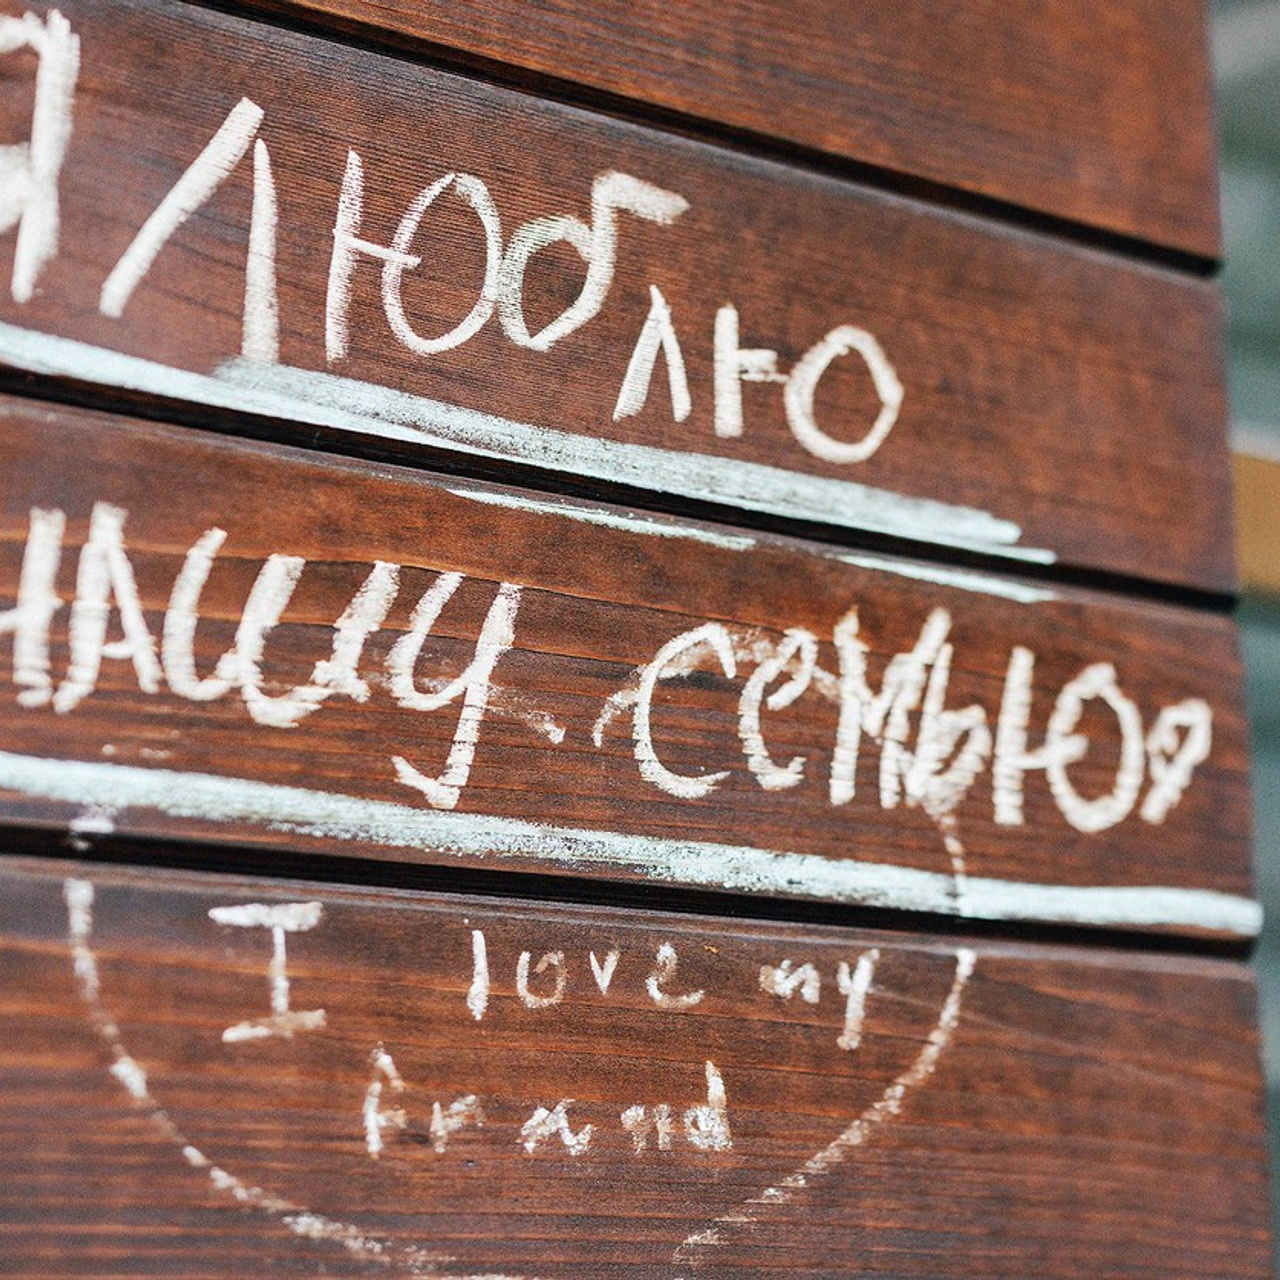 Я люблю
нашу семью
I love my
friend